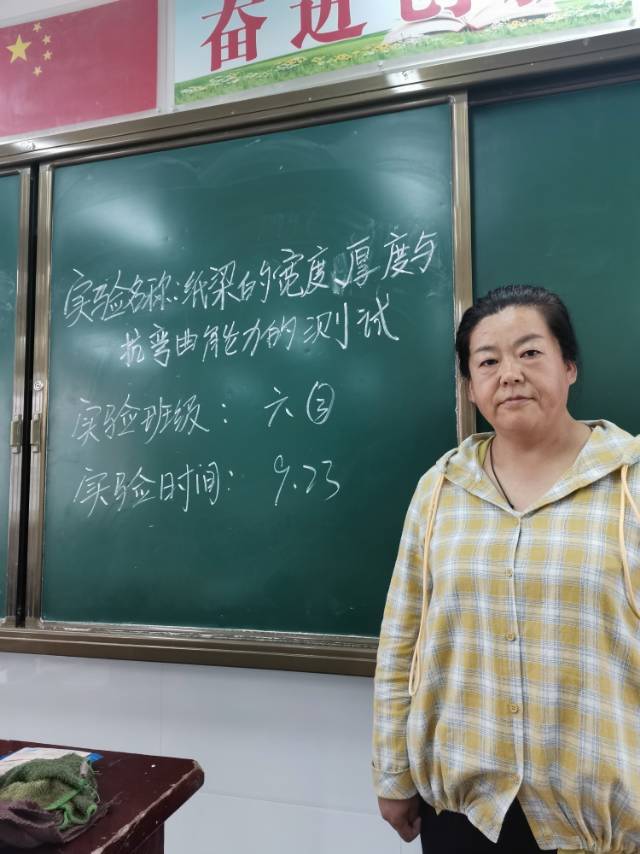 奋进创
实验名称:纸梁的宽度、厚度与
抗弯曲能力的测试
实验班级: 六③
实验时间: 9.23